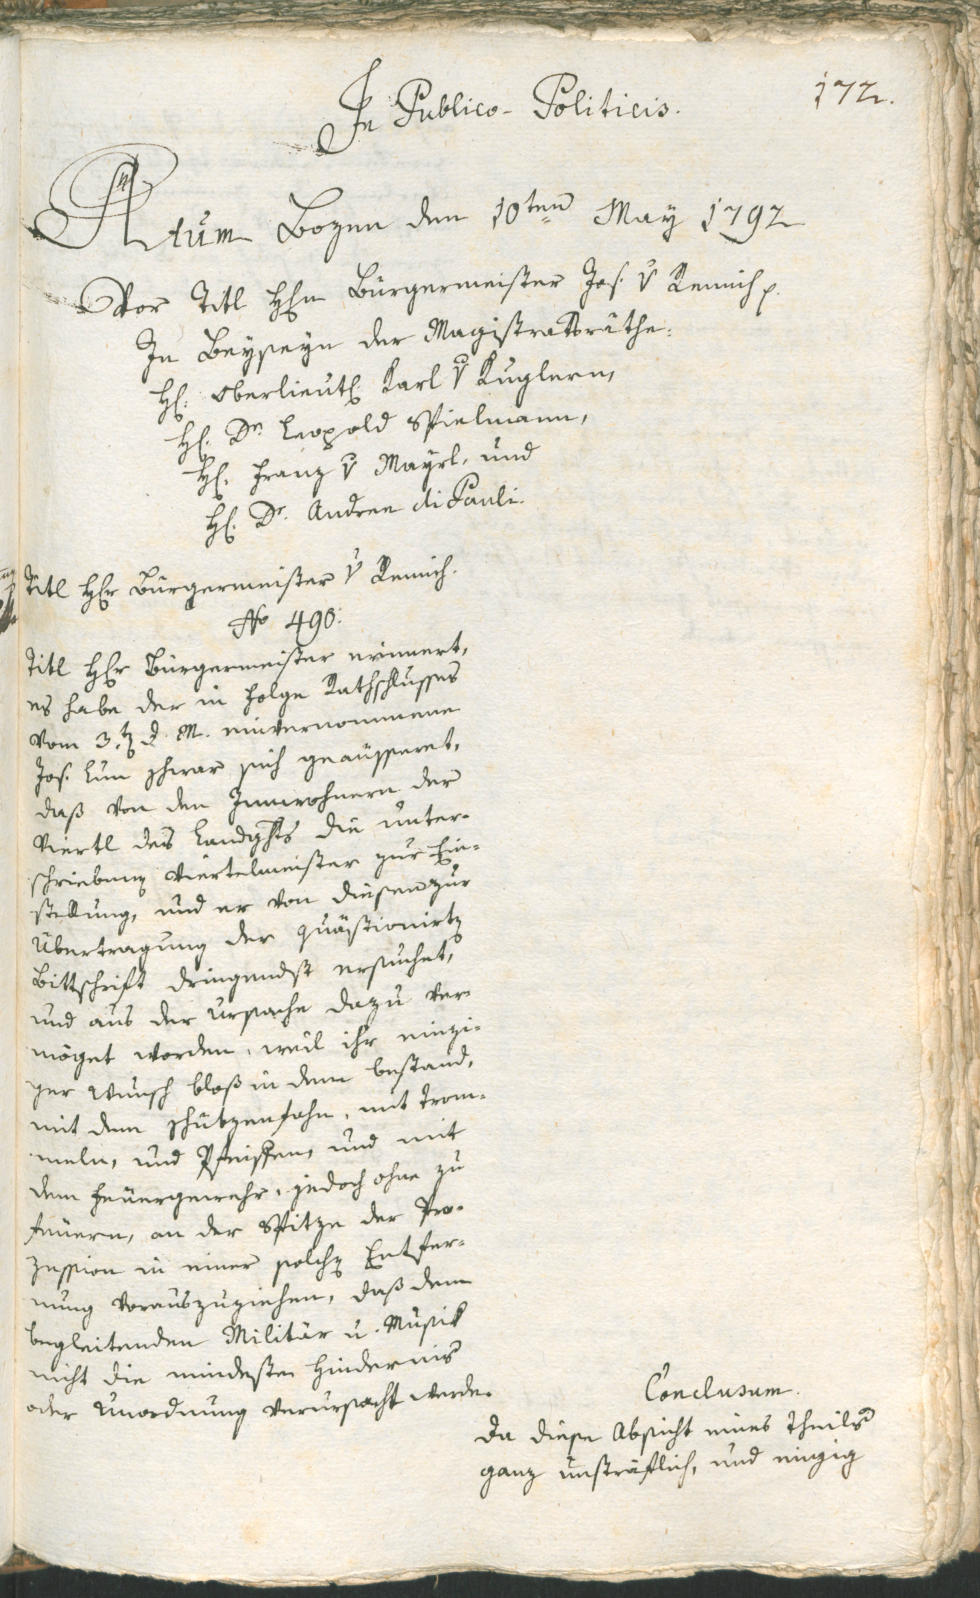 172.
In Publico-Politicis.
Actum Bozen den 10ten May 1792
Vor Titl Hhn Bürgermeister Jos. v Remich p.
In Beyseyn der Magistratsräthe:
H: Oberlieut Karl v Kuglern,
H: Dr. Leopold Spielmann,
H: Franz v Mayrl, und
H: Dr. Andree di Pauli.
Titl Hhr Bürgermeister v Remich.
No 490:
Titl Hhr Bürgermeister erinnert,
es habe der in Folge Rathschlusses
vom 3.ten d. M. einvernommene
Jos. Lun zwar sich geäusseret,
daß von den Innwohnern der
Viertl des Landghts die unter-
schriebene Viertelmeister zur Ein-
stellung, und er von diesen zur
Übertragung der quästionirten
Bittschrift dringendst ersuchet,
und aus der Ursache dazu ver-
möget worden, weil ihr einzi-
ger Wunsch bloß in dem bestand,
mit dem Schützenfahn, mit Trom-
meln, und Pfeiffen, und mit
dem Feuergewehr, jedoch ohne zu
feuern, an der Spitze der Pro-
zession in einer solchen Entfer-
nung vorauszuziehen, daß dem
begleitenden Militär u. Musik
nicht die mindeste Hindernis
oder Unordnung verursacht werde.
Conclusum.
Da diese Absicht eines Theils
ganz unsträflich, und einzig